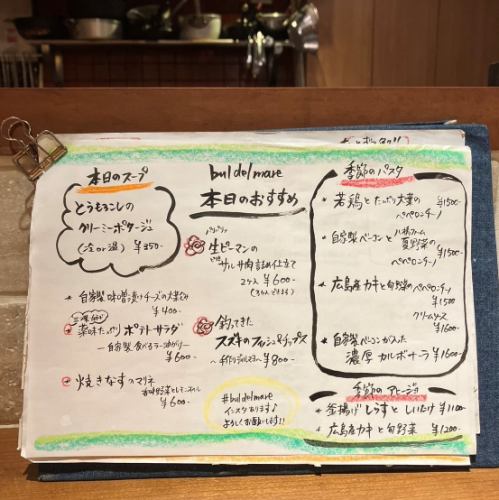 本日のスープ
とうもろこしの
クリーミーポタージュ
(冷or温) ¥350-
・自家製味噌漬けチーズの大葉包み
¥400-
薬味たっぷりポテトサラダ
―自家製食べるラー油がけ―
¥600-
焼きなすのマリネ
¥600-
bul dolmare
本日のおすすめ
パリパリ
生ピーマンの
サルサ肉詰め仕立て
2ケ入 ¥600-
釣ってきた
スズキのフィッシュ&チップス
¥800-
#buldelmare
インスタあります♪
よろしくお願いします!!
季節のパスタ
★若鶏とたっぷり大葉の
ペペロンチーノ ¥1500-
★自家製ベーコンと
夏野菜の
ペペロンチーノ ¥1500-
★広島産カキと旬野菜のペペロンチーノ
¥1500
クリームソース
¥1600-
★自家製ベーコンが入った
濃厚カルボナーラ ¥1600-
季節のアヒージョ
★釜揚げしらすとしいたけ ¥1100-
★広島産カキと旬野菜 ¥1200-